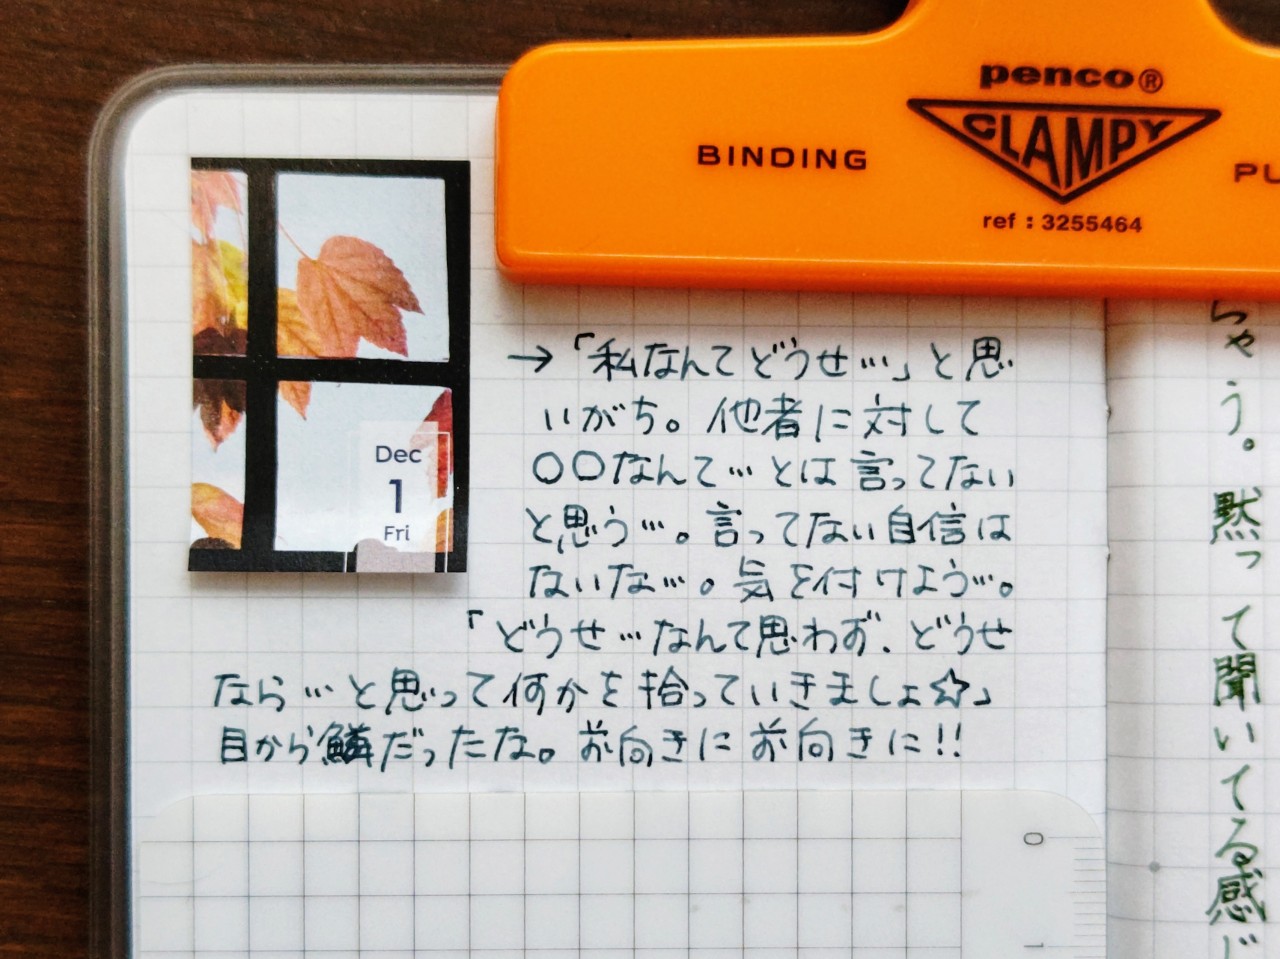 penco®
CLAMPY
BINDING
PU
ref : 3255464
Dec
1
Fri
→「私なんてどうせ…」と思
いがち。他者に対して
○○なんて…とは言ってない
と思う…。言ってない自信は
ないな…。気を付けよう…。
「どうせ…なんて思わず、どうせ
なら…と思って何かを拾っていきましょ☆」
目から鱗だったな。前向きに前向きに!!
ちゃう。黙って聞いてる感じ
0
1